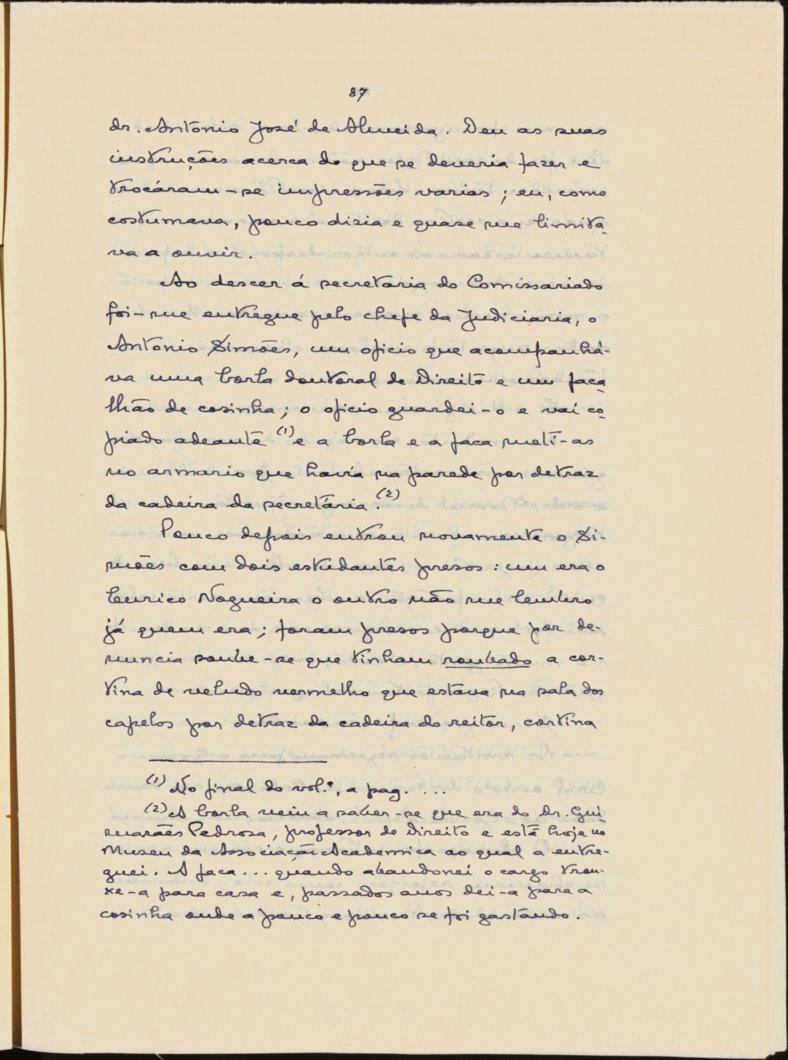 87
dr. Antonio José de Almeida. Deu as suas
instruções acerca do que se deveria fazer e
trocáram-se impressões varias; eu, como
costumava, pouco dizia e quase me limita-
va a ouvir.
Ao descer á secretaria do Comissariado
foi-me entregue pelo chefe da Judiciaria, o
Antonio Simões, um oficio que acompanhá-
va uma borla doutoral de Direito e um faca-
lhão de cosinha; o oficio guardei-o e vai co-
piado adeante (1) e a borla e a faca meti-as
no armario que havia na parede por detraz
da cadeira da secretária. (2)
Pouco depois entrou novamente o Si-
mões com dois estudantes presos: um era o
Eurico Nogueira o outro não me lembro
já quem era; foram presos porque por de-
nuncia soube-se que tinham roubado a cor-
tina de veludo vermelho que estava na sala dos
capelos por detraz da cadeira do reitor, cortina
(1) No final do vol.e, a pag. ....
(2) A borla veiu a saber-se que era do dr. Gui-
marães Pedrosa, professor de Direito e está hoje no
Museu da Associação Academica ao qual a entre-
guei. A faca... quando abandonei o cargo trou-
xe-a para casa e, passados anos dei-a para a
cosinha onde a pouco e pouco se foi gastando.